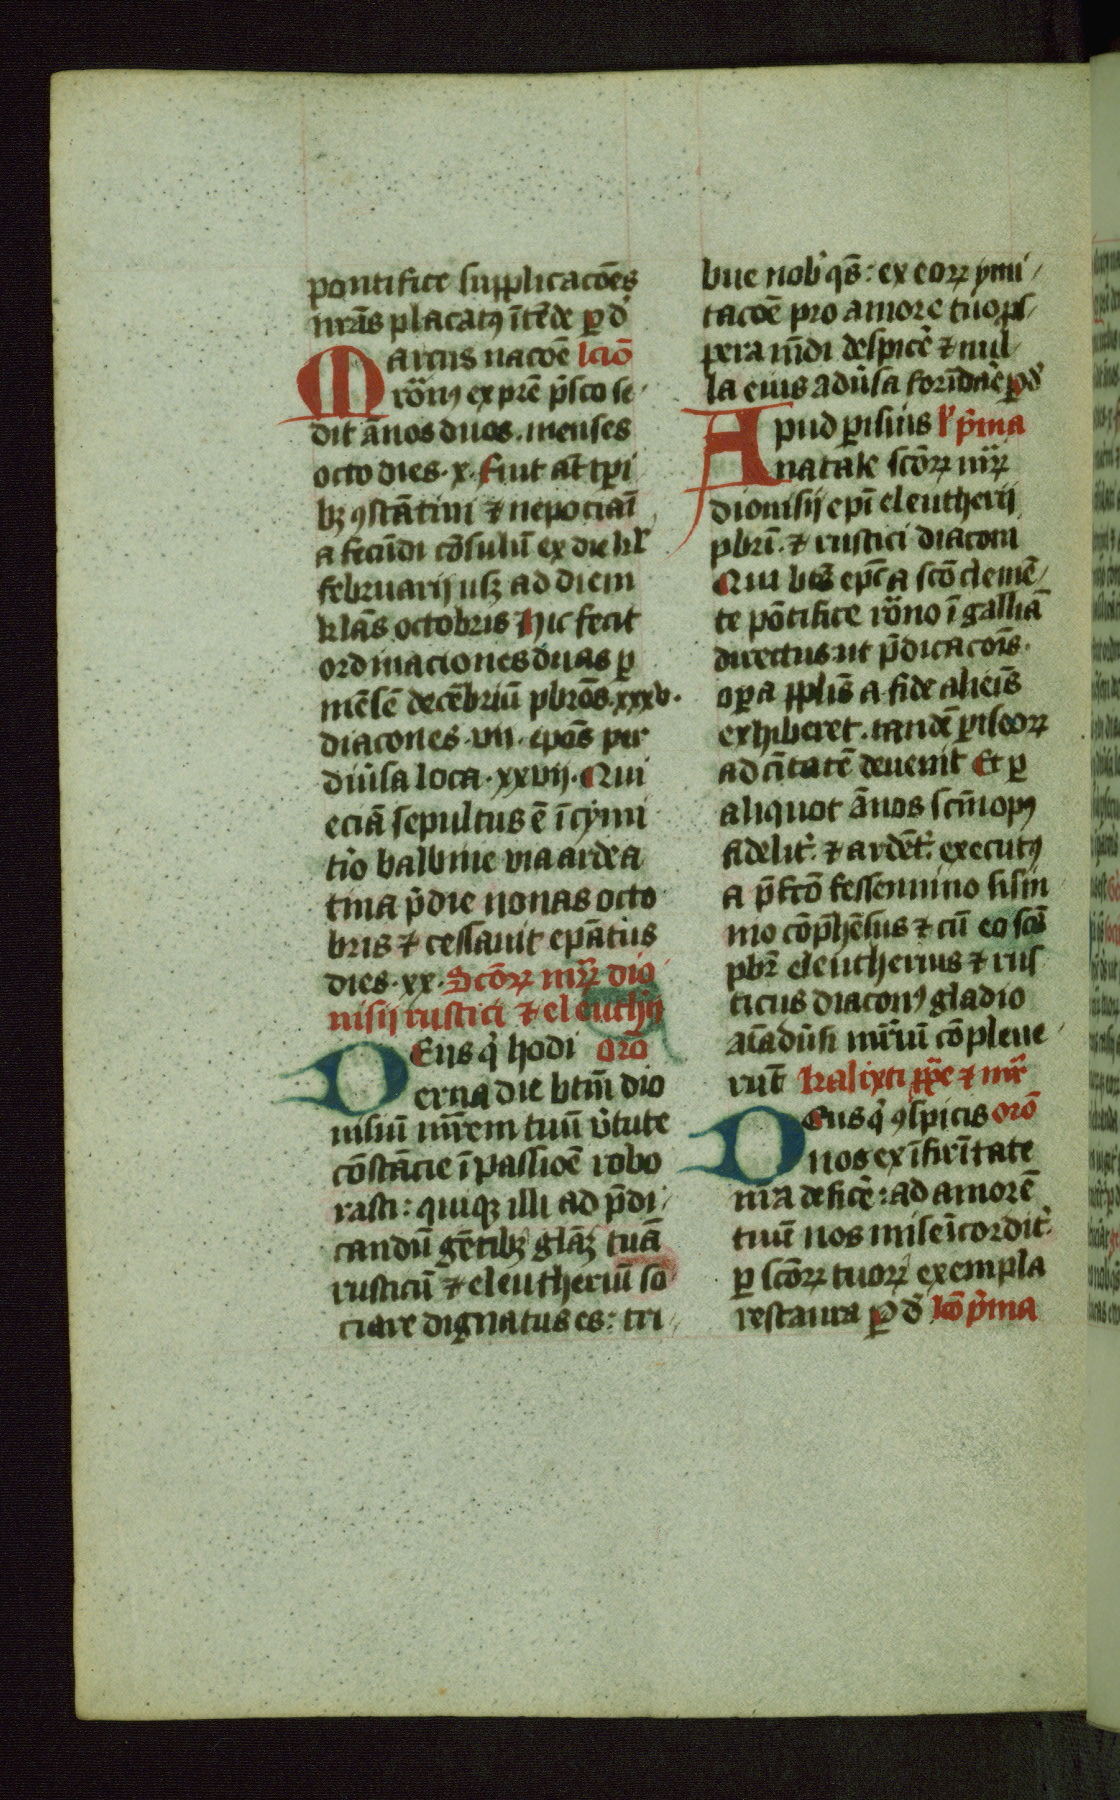 pontifice supplicacōēs
nr̄as placatꝰ ītēde ꝑ d̄
Marcus nacōē lc̄io
rōnꝰ ex pr̄e p̄sco se
dit ānos duos. menses
octo dies .x. fuit aūt tp̄i
bꝫ ꝯstātini ⁊ nepociani
a secūdi cōsulū ex die kl̄
februarij usqꝫ ad diem
kl̄as octobris Hic fecit
ordinaciones duas ꝑ
mēsē decēbriū pbrōs .xxxv.
diacones .vii. ep̄os per
diūsa loca .xxvij. Qui
eciā sepultus ē ī cymi
tio balbine via ardea
tina p̄die nonas octo
bris ⁊ cessavit ep̄atus
dies .xx. Scōꝝ mr̄ꝝ dio
nisij rustici ⁊ eleutherij
DEus qͥ hodi orō
erna die btm̄ dio
nisiū mr̄em tuū v̄tute
cōstācie ī passiōe robo
rasti: quiqꝫ illi ad p̄di
candū gētibꝫ glāꝫ tuā
rusticū ⁊ eleutheriū so
ciare dignatus es: tri
bue nob̄ qs̄: ex eoꝝ ymi
tacōē pro amore tuo ꝓs
pera mūdi despicē ⁊ nul
la eius adūsa formidare ꝑ d̄
Apud parisius lc̄ p̄ma
natale scōꝝ mr̄ꝝ
dionisij ep̄i eleutherij
pbrī ⁊ rustici diaconi
Qui bt̄s ep̄c a scō clemē
te pōtifice rōno ī galliā
directus ut p̄dicacōis
opa ppl̄is a fide alieīs
exhiberet. tandē ꝑisioꝝ
ad cītatē devenit Et ꝑ
aliquot ānos scm̄ opꝰ
fidelit̄ ⁊ ardēt̄ executꝰ
a p̄fcō fessennino sisin
nio cōp̄hēsus ⁊ cū eo scs̄
pbr̄ eleutherius ⁊ rus
ticus diaconꝰ gladio
aīadūsi mr̄iū cōpleve
rūt Kalixti pp̄e ⁊ mr̄
Deus qͥ ꝯspicis orō
nos ex īfirītate
nr̄a deficē: ad amorē
tuū nos misēicordit̄
ꝑ scōꝝ tuoꝝ exempla
restaura ꝑ d̄ lc̄o p̄ma